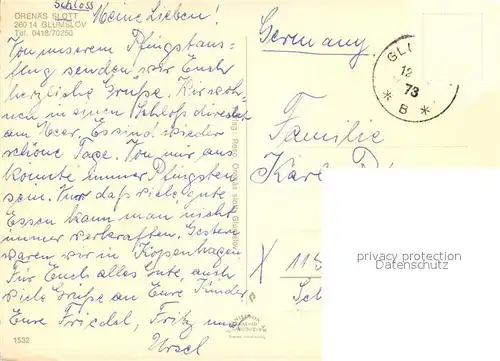 Schloss
ÖRENÄS SLOTT
260 14 GLUMSLÖV
Tel. 0418/70250
Meine Lieben!
Von unserem Pfingstaus-
flug senden wir Euch
herzliche Grüße. Wir woh-
nen in einem Schloß direkt
am Meer. Es sind wieder
schöne Tage. Von mir aus
könnte immer Pfingsten
sein. Nur daß viele gute
Essen kann man nicht
immer verkraften. Gestern
waren wir in Kopenhagen
Für Euch alles Gute, auch
viele Grüße an Eure Kinder
Eure Friedel, Fritz und
Ursel
1532
Germany.
GL
12
73
* B *
Familie
Karl
X 115
Sch
Örenäs slott Glumslöv
watermarked
for personal
Datenschutz